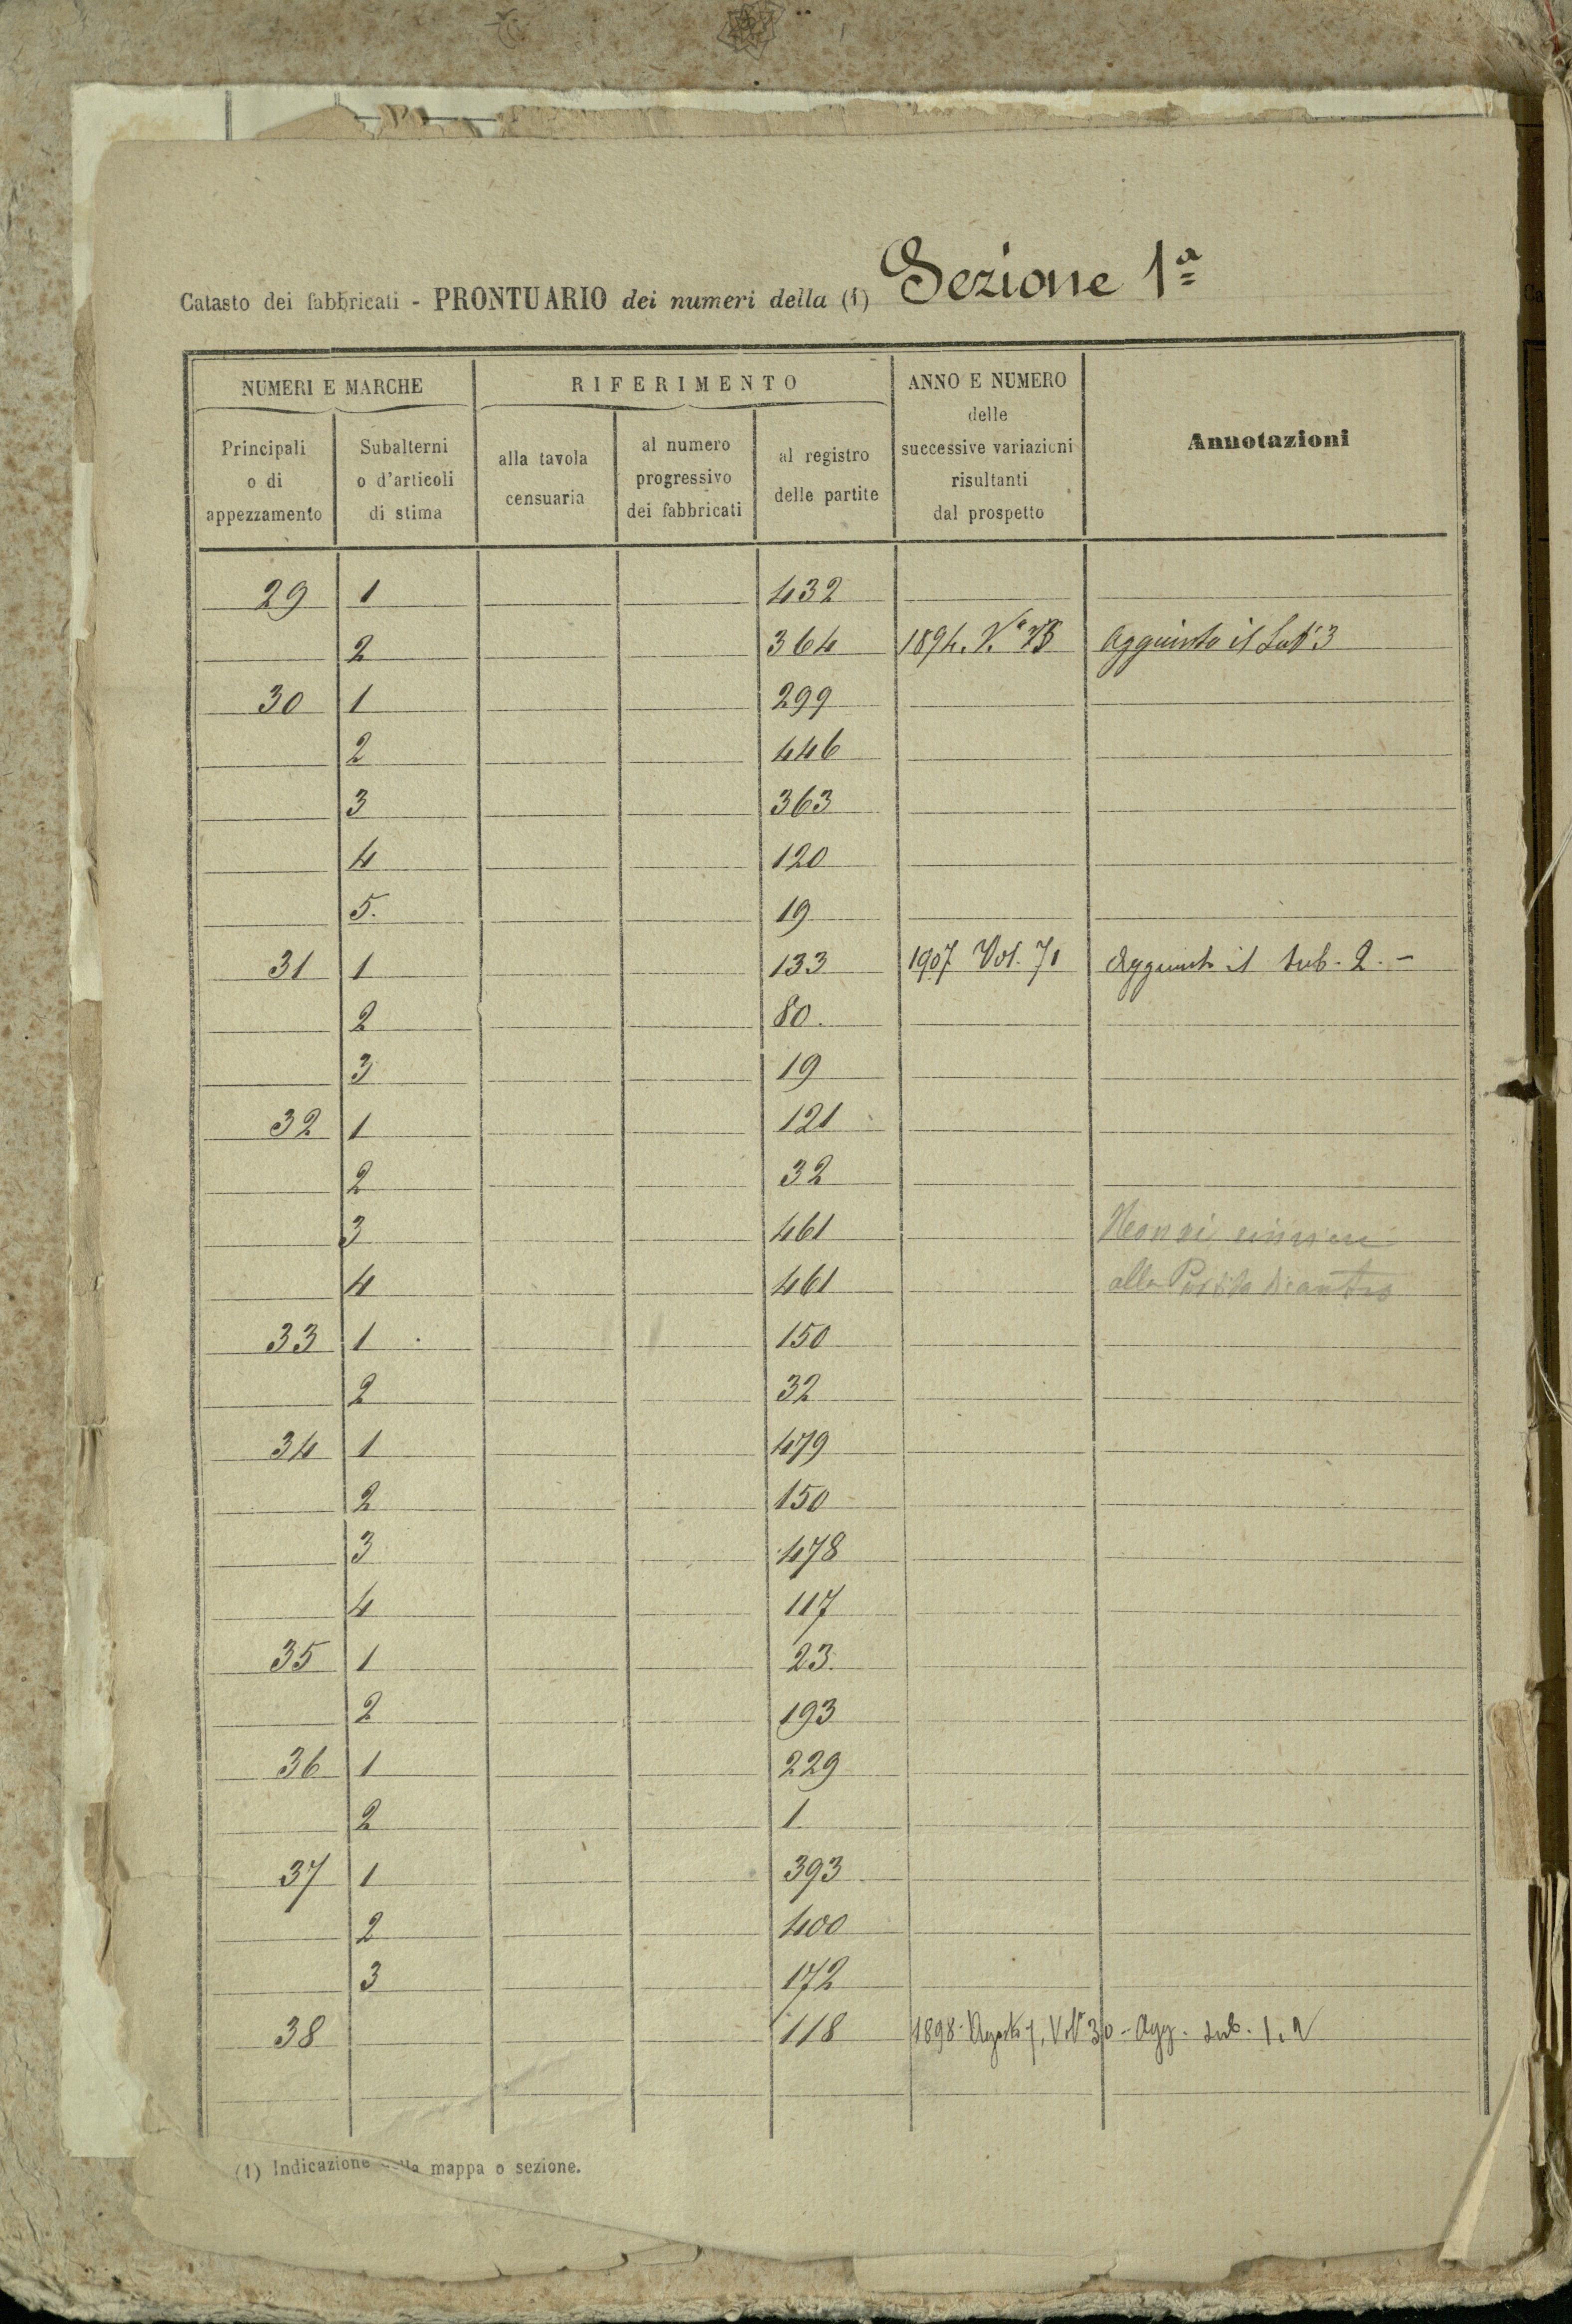 Catasto dei fabbricati - PRONTUARIO dei numeri della (1) Sezione 1ª
NUMERI E MARCHE
Principali o di appezzamento
Subalterni o d'articoli di stima
RIFERIMENTO
alla tavola censuaria
al numero progressivo dei fabbricati
al registro delle partite
ANNO E NUMERO delle successive variazioni risultanti dal prospetto
Annotazioni
29 1 432
2 364 1894. V. Aggiunto il Sub. 3
30 1 299
2 446
3 363
4 120
5. 19
31 1 133 1907 Vol. 71 Aggiunto il sub. 2. -
2 80.
3 19
32 1 121
2 32
3 461 Non si
4 461 alla
33 1 150
2 32
34 1 479
2 150
3 478
4 117
35 1 23.
2 193
36 1 229
2 1
37 1 393
2 400
3 172
38 118 1898 - 30 - Agg. sub. 1. 2
(1) Indicazione della mappa o sezione.